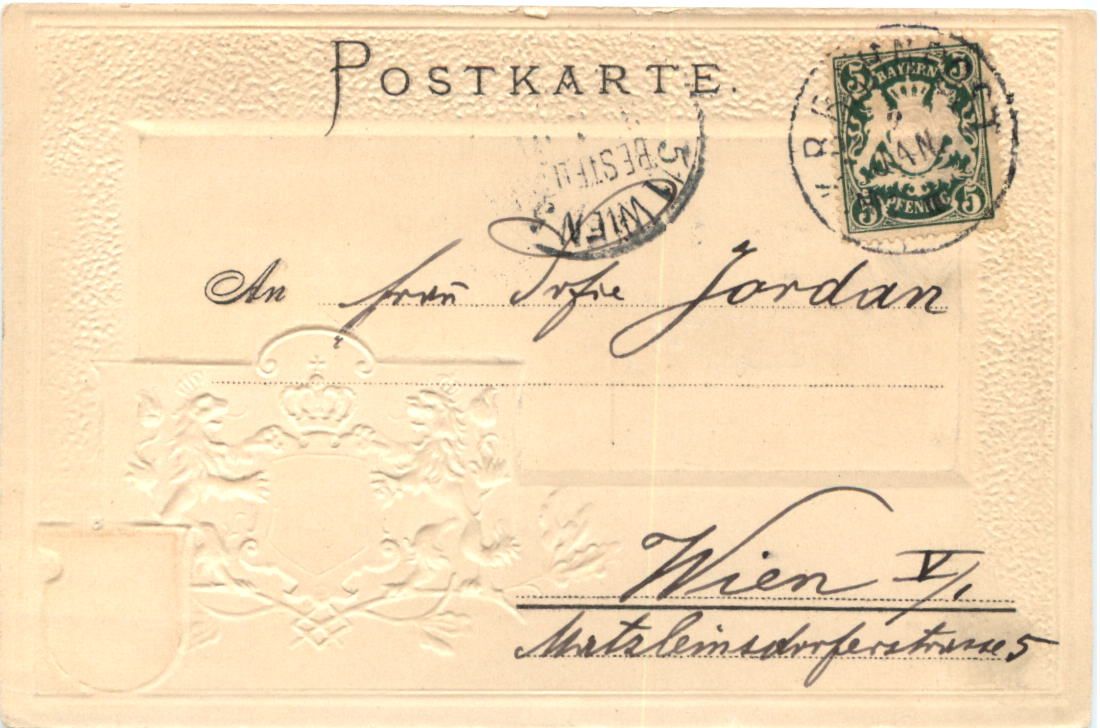 POSTKARTE.
5 BAYERN 5
5 PFENNIG 5
8 JAN
5/1 WIEN
BESTELLT
An Frau Sofie Jordan
Wien V/1
Matzleinsdorferstrasse 5